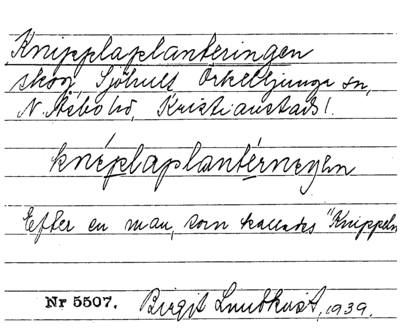 Knipplaplanteringen
skog, Sjöhult Örkelljunga sn,
N. Åsbo hd, Kristianstads l.
knéplaplantérneŋen
Efter en man, som kallades "Knippeln
Nr 5507. Birgit Lundkvist, 1939.